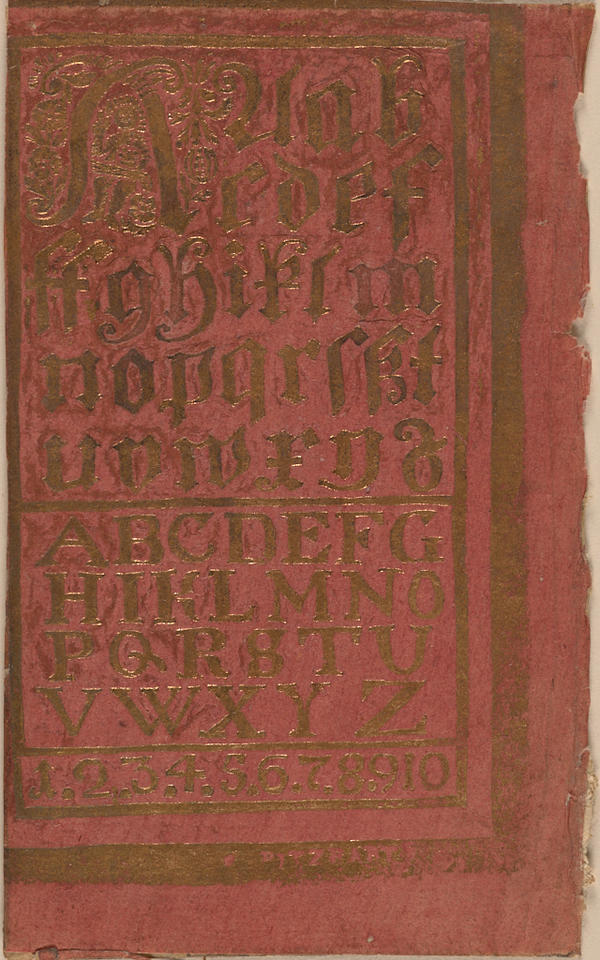 A A a b
c d e f
ff g h i k l m
n o p q r ſ ß t
u v w x y z
A B C D E F G
H I K L M N O
P Q R S T U
V W X Y Z
1.2.3.4.5.6.7.8.9 10